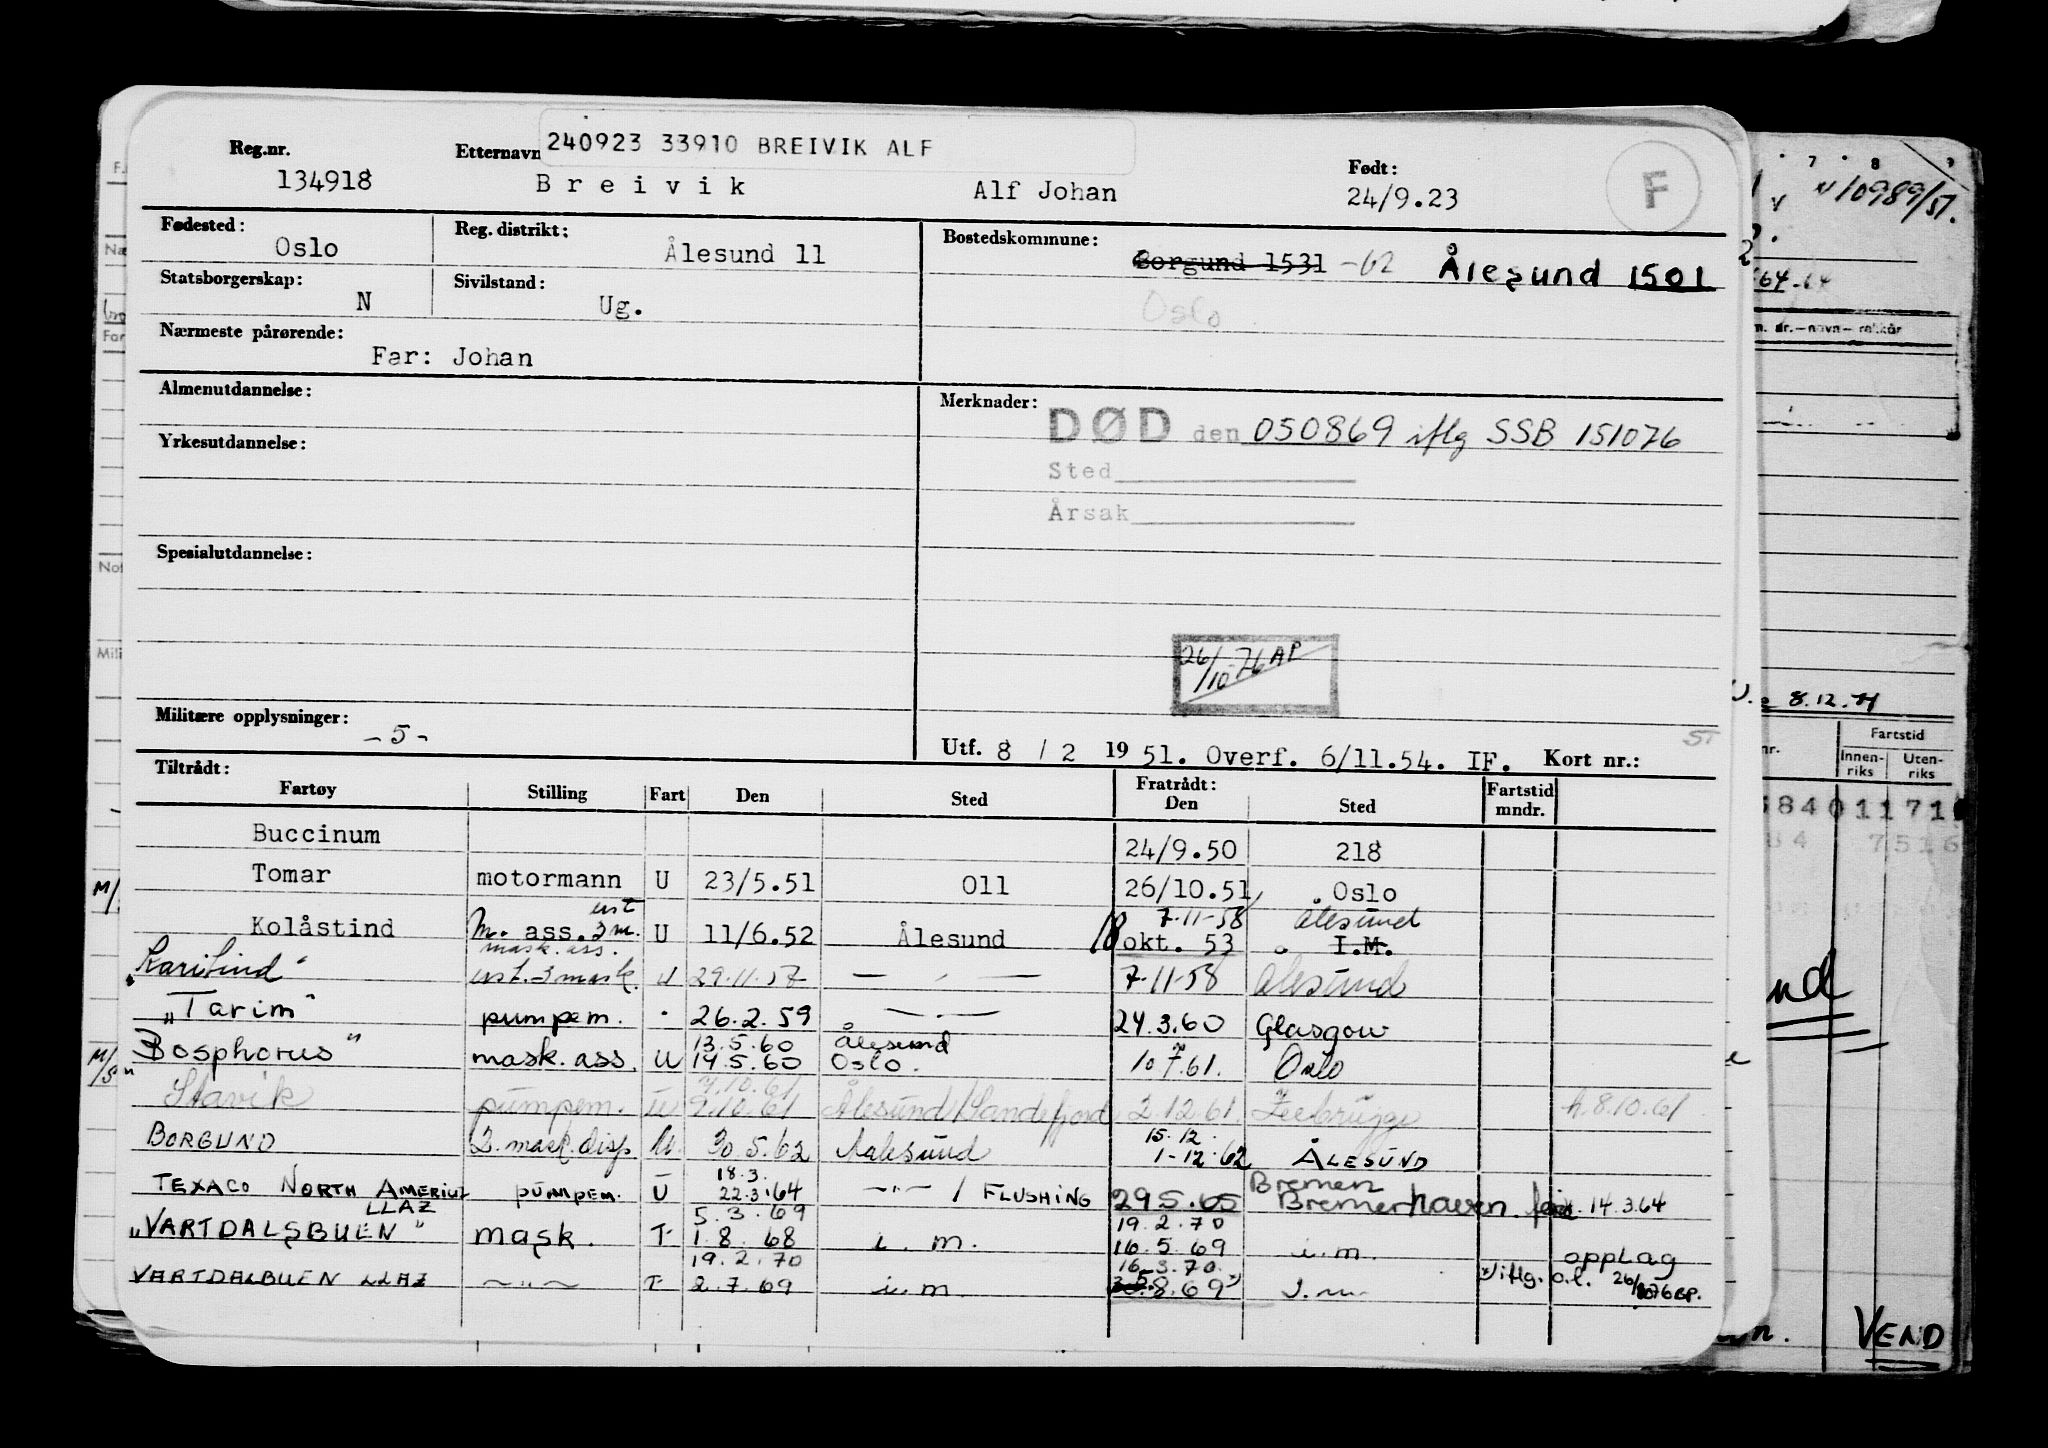 240923 33910 BREIVIK ALF
Reg.nr. Etternavn Født:
134918 Breivik Alf Johan 24/9.23 F
Fødested: Oslo Reg. distrikt: Ålesund 11 Bostedskommune: Borgund 1531 -62 Ålesund 1501
Oslo
Statsborgerskap: N Sivilstand: Ug.
Nærmeste pårørende:
Far: Johan
Almenutdannelse: Merknader:
DØD den 050869 iflg SSB 151076
Yrkesutdannelse:
Sted
Årsak
Spesialutdannelse:
26/10-76 AP
Militære opplysninger: -5-
Utf. 8 / 2 1951. Overf. 6/11.54. IF. Kort nr.:
Tiltrådt: Fratrådt:
Fartøy Stilling Fart Den Sted Den Sted Fartstid mndr.
Buccinum 24/9.50 218
Tomar motormann U 23/5.51 011 26/10.51 Oslo
ust 7.11-58 Ålesund
Kolåstind m. ass. 3 m. U 11/6.52 Ålesund 18 okt. 53 I.M.
mask. ass.
ust. 3 mask. U 29.11.57 — " — 7.11-58 Ålesund
"Tarim" pumpem. " 26.2.59 — " — 24.3.60 Glasgow
13.5.60 Ålesund
"Bosphorus" mask. ass. U 14.5.60 Oslo. 10.7.61. Oslo
7.10.61
Stavik pumpem. U 9.10.61 Ålesund/Sandefjord 2.12.61. Zeebrügge h.8.10.61
15.12.
BORGUND 2. mask. disp. U. 30.5.62 Aalesund 1-12.62 ÅLESUND
18.3. Bremen
TEXACO NORTH AMERICA pumpem. U 22.3.64 —"— / FLUSHING 29.5.65 Bremerhaven 14.3.64
LLAZ 5.3.69 19.2.70
"VARTDALSBUEN" mask. T 1.8.68 i.m. 16.5.69 i.m. opplag
19.2.70 16.3.70
VARTDALBUEN LLAZ —"— T 2.7.69 i.m. 8.69 x) I.m. x) iflg. o.l. 26/10 76 BP.
V 10989/51.
64-64
8.12.71
Fartstid
Innen-riks Uten-riks
84011710
7516
VEND